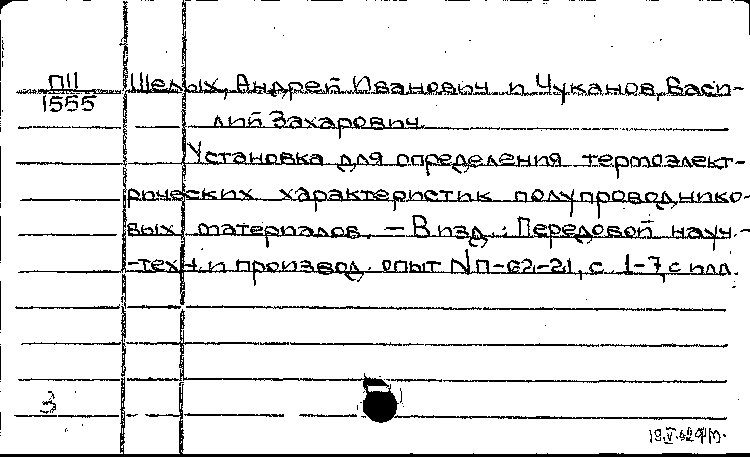 П11
1555
Шелых, Андрей Иванович и Чуканов, Васи-
лий Захарович.
Установка для определения термоэлект-
рических характеристик полупроводнико-
вых материалов. – В изд.: Передовой науч.-
-техн. и производ. опыт N П-62-21, с 1-7, с илл.
3